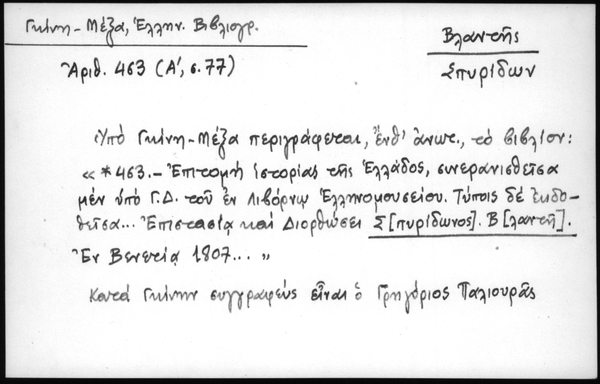 Γκίνη - Μέξα, Ἑλλην. Βιβλιογρ.
Βλαντῆς
Ἀριθ. 463 (Α', σ. 77)
Σπυρίδων
Ὑπό Γκίνη-Μέξα περιγράφεται, ἔνθ' ἄνωτ., τό βιβλίον:
«*463.- Ἐπιτομή ἱστορίας τῆς Ἑλλάδος, συνερανισθεῖσα
μέν ὑπό Γ.Δ. τοῦ ἐν Λιβόρνῳ Ἑλληνομουσείου. Τύποις δέ ἐκδο-
θεῖσα... Ἐπιστασίᾳ καί Διορθώσει Σ[πυρίδωνος]. Β[λαντῆ].
Ἐν Βενετίᾳ 1807... »
Κατά Γκίνην συγγραφεύς εἶναι ὁ Γρηγόριος Παλιουρᾶς